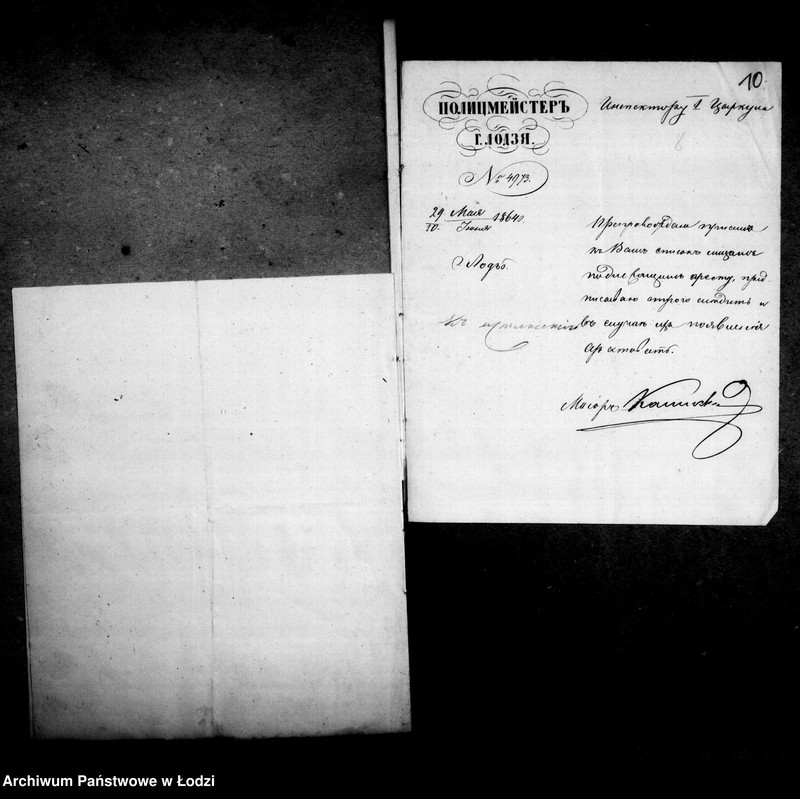 10
ПОЛИЦМЕЙСТЕРЪ
Г. ЛОДЗЯ.
№ 4973.
29 Мая
10 Іюня 1864 г.
Лодзь.
Инспектору I Циркула
Препровождая при семъ
къ Вамъ списокъ лицамъ
подлежащимъ аресту, пред-
писываю строго слѣдить и
въ случаѣ ихъ появленія
арестовать.
Маіоръ
Archiwum Państwowe w Łodzi